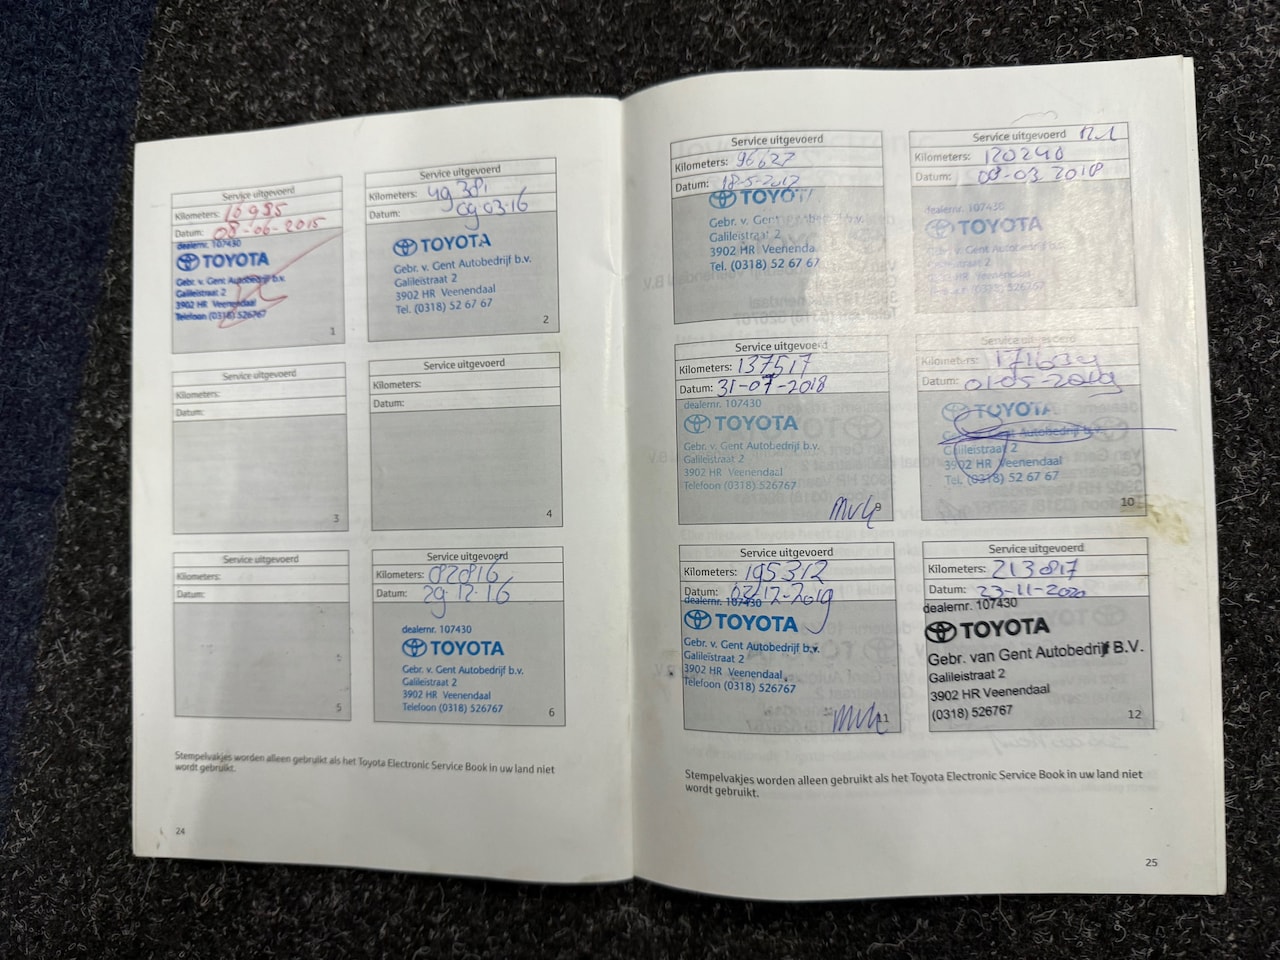 Service uitgevoerd
Kilometers: 16985
Datum: 08-06-2015
dealernr. 107430
TOYOTA
Gebr. v. Gent Autobedrijf b.v.
Galileïstraat 2
3902 HR Veenendaal
Telefoon (0318) 526767
1
Service uitgevoerd
Kilometers: 49381
Datum: 09-03-16
TOYOTA
Gebr. v. Gent Autobedrijf b.v.
Galileïstraat 2
3902 HR Veenendaal
Tel. (0318) 52 67 67
2
Service uitgevoerd
Kilometers:
Datum:
3
Service uitgevoerd
Kilometers:
Datum:
4
Service uitgevoerd
Kilometers:
Datum:
5
Service uitgevoerd
Kilometers: 82816
Datum: 29-12-16
dealernr. 107430
TOYOTA
Gebr. v. Gent Autobedrijf b.v.
Galileïstraat 2
3902 HR Veenendaal
Telefoon (0318) 526767
6
Stempelvakjes worden alleen gebruikt als het Toyota Electronic Service Book in uw land niet
wordt gebruikt.
24
Service uitgevoerd
Kilometers: 96627
Datum: 18-5-2017
TOYOTA
Gebr. v. Gent Autobedrijf b.v.
Galileïstraat 2
3902 HR Veenendaal
Tel. (0318) 52 67 67
Service uitgevoerd
Kilometers: 120240
Datum: 08-03-2018
dealernr. 107430
TOYOTA
Service uitgevoerd
Kilometers: 137517
Datum: 31-07-2018
dealernr. 107430
TOYOTA
Gebr. v. Gent Autobedrijf b.v.
Galileïstraat 2
3902 HR Veenendaal
Telefoon (0318) 526767
Service uitgevoerd
Kilometers:
Datum: 01-05-2019
TOYOTA
Autobedrijf b.v.
Galileïstraat 2
3902 HR Veenendaal
Tel. (0318) 52 67 67
10
Service uitgevoerd
Kilometers: 195312
Datum: 02-12-2019
dealernr. 107430
TOYOTA
Gebr. v. Gent Autobedrijf b.v.
Galileïstraat 2
3902 HR Veenendaal
Telefoon (0318) 526767
11
Service uitgevoerd
Kilometers: 213817
Datum: 23-11-2020
dealernr. 107430
TOYOTA
Gebr. van Gent Autobedrijf B.V.
Galileïstraat 2
3902 HR Veenendaal
(0318) 526767
12
Stempelvakjes worden alleen gebruikt als het Toyota Electronic Service Book in uw land niet
wordt gebruikt.
25